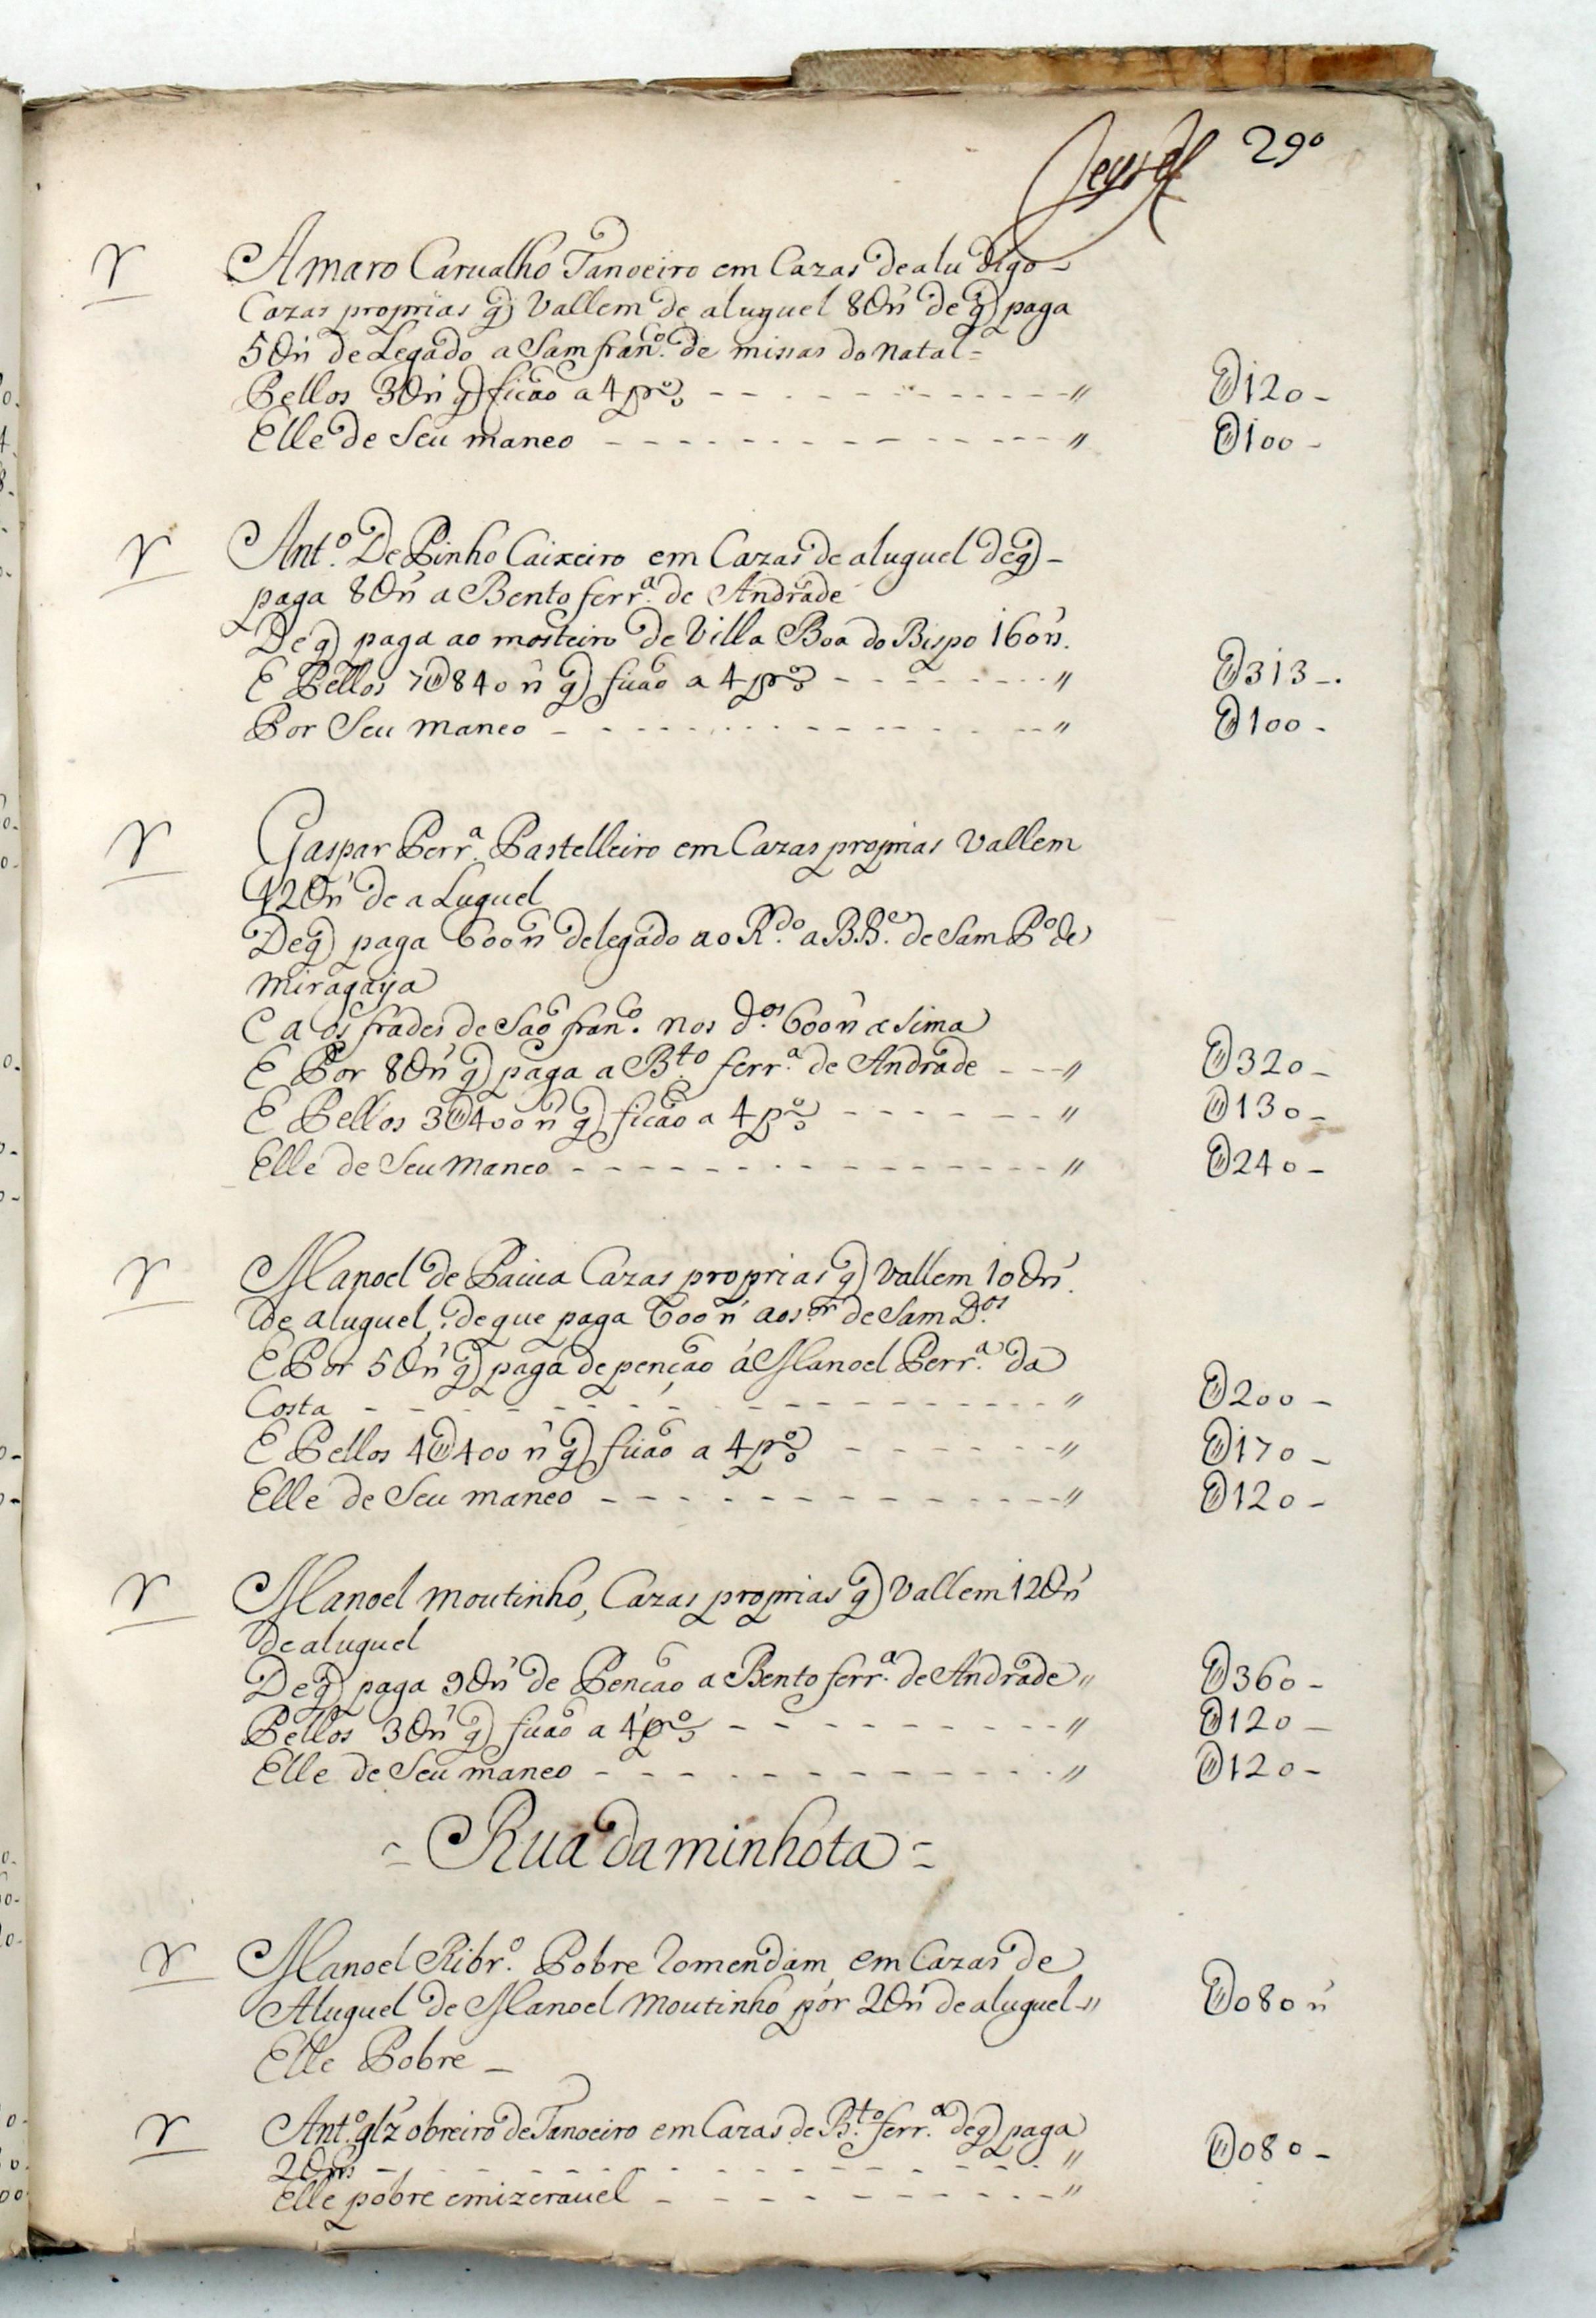 290
Amaro Carualho Tanoeiro em Cazas de alu digo
Cazas proprias q vallem de aluguel 8U rs de q paga
5U rs de Legado a Sam fran.co de missas do natal =
Pellos 3U rs q ficão a 4 pr o/o - - - - - - - - - - - - " U120 -
Elle de Seu maneo - - - - - - - - - - - - " U100 -
Ant.o De Pinho Caixeiro em Cazas de aluguel de q
paga 8U rs a Bento ferr.a de Andrade
De q paga ao mosteiro de Villa Boa do Bispo 160 rs.
E Pellos 7U840 rs q ficão a 4 pr o/o - - - - - - - - " U313 -.
Por Seu maneo - - - - - - - - - - - - - " U100 -
Gaspar Perr.a Pastelleiro em Cazas proprias vallem
12U rs de a Luguel
De q paga 600 rs de legado ao R.do a B.B.e de Sam P.o de
miragaya
E a os frades de São fran.co nos d.os 600 rs a sima
E Por 8U rs q paga a B.to ferr.a de Andrade - - - " U320 -
E Pellos 3U400 rs q ficão a 4 pr o/o - - - - - - - " U130 -
Elle de Seu Maneo - - - - - - - - - - - - - " U240 -
Manoel de Paiua Cazas proprias q vallem 10U rs.
De aluguel, de que paga 600 rs aos.or de Sam D.os
E Por 5U rs q paga de penção á Manoel Perr.a da
Costa - - - - - - - - - - - - - - - - - " U200 -
E Pellos 4U400 rs q ficão a 4 pr o/o - - - - - - " U170 -
Elle de Seu maneo - - - - - - - - - - - - " U120 -
Manoel moutinho, Cazas proprias q vallem 12U rs
de aluguel
De q paga 9U rs de Penção a Bento ferr.a de Andrade " U360 -
Pellos 3U rs q ficão a 4 pr o/o - - - - - - - - - " U120 -
Elle de Seu maneo - - - - - - - - - - - - " U120 -
= Rua da minhota =
Manoel Ribr.o Pobre Romendam em Cazas de
Aluguel de Manoel Moutinho por 2U rs de aluguel " U080 rs
Elle Pobre -
Ant.o glz obreiro de Tanoeiro em Cazas de B.to ferr.a de q paga
2U rs - - - - - - - - - - - - - - - - " U080 -
Elle pobre emizerauel - - - - - - - - - - "